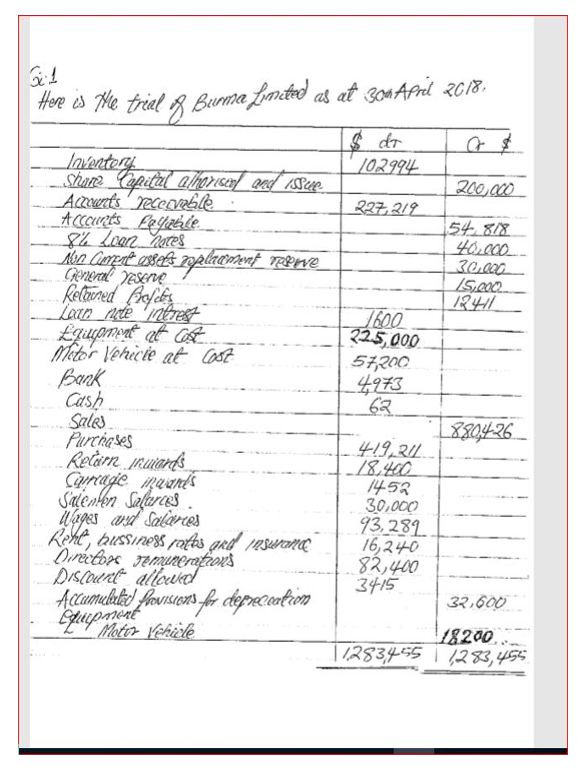 Qi.1
Here is the trial of Burma Limited as at 30th April 2018.
$ dr Cr $
Inventory 102994
Share Capital athorised and issue 200,000
Accounts receevable 227,219
Accounts Payable 54,818
8% Loan notes 40,000
Non Current assets replacement reserve 30,000
General reserve 15,000
Retained Profits 12411
Loan note intrest 1600
Equipment at Cost 225,000
Motor Vehicle at Cost 57,200
Bank 4,973
Cash 62
Sales 880,426
Purchases 419,211
Return inwards 18,400
Carriage inwards 1452
Salemen Salaries 30,000
Wages and Salaries 93,289
Rent, bussiness rates and insurance 16,240
Directors remunerations 82,400
Discount allowed 3415
Accumulated Provisions for depreceation 32,600
Equipment
Motor Vehicle 18200
1,283,455 1,283,455